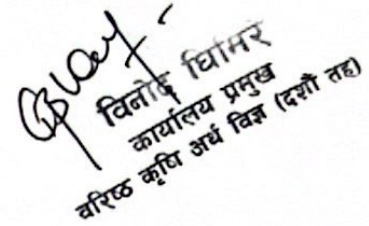 विनोद घिमिरे
कार्यालय प्रमुख
वरिष्ठ कृषि अर्थ विज्ञ (दशौं तह)